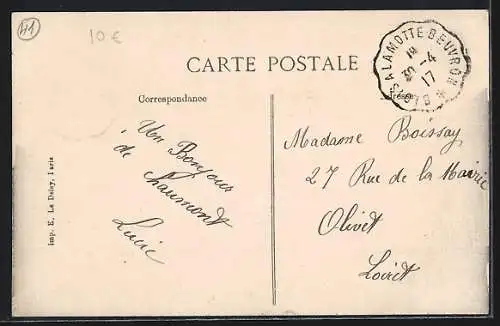 41
10 €
CARTE POSTALE
BLOIS A LAMOTTE BEUVRON
1e
30-4
17
Correspondance
Adresse
Un Bonjour
de Chaumont
Lucie
Madame Boissay
27 Rue de la Mairie
Olivet
Loiret
Imp. E. Le Deley, Paris